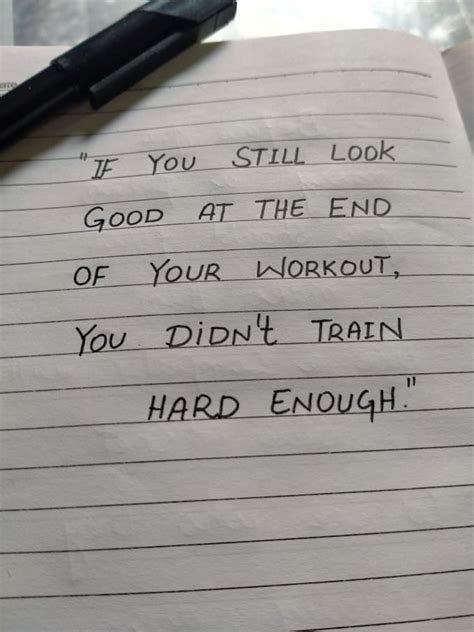 "IF YOU STILL LOOK
GOOD AT THE END
OF YOUR WORKOUT,
YOU DiDN't TRAIN
HARD ENOUGH."